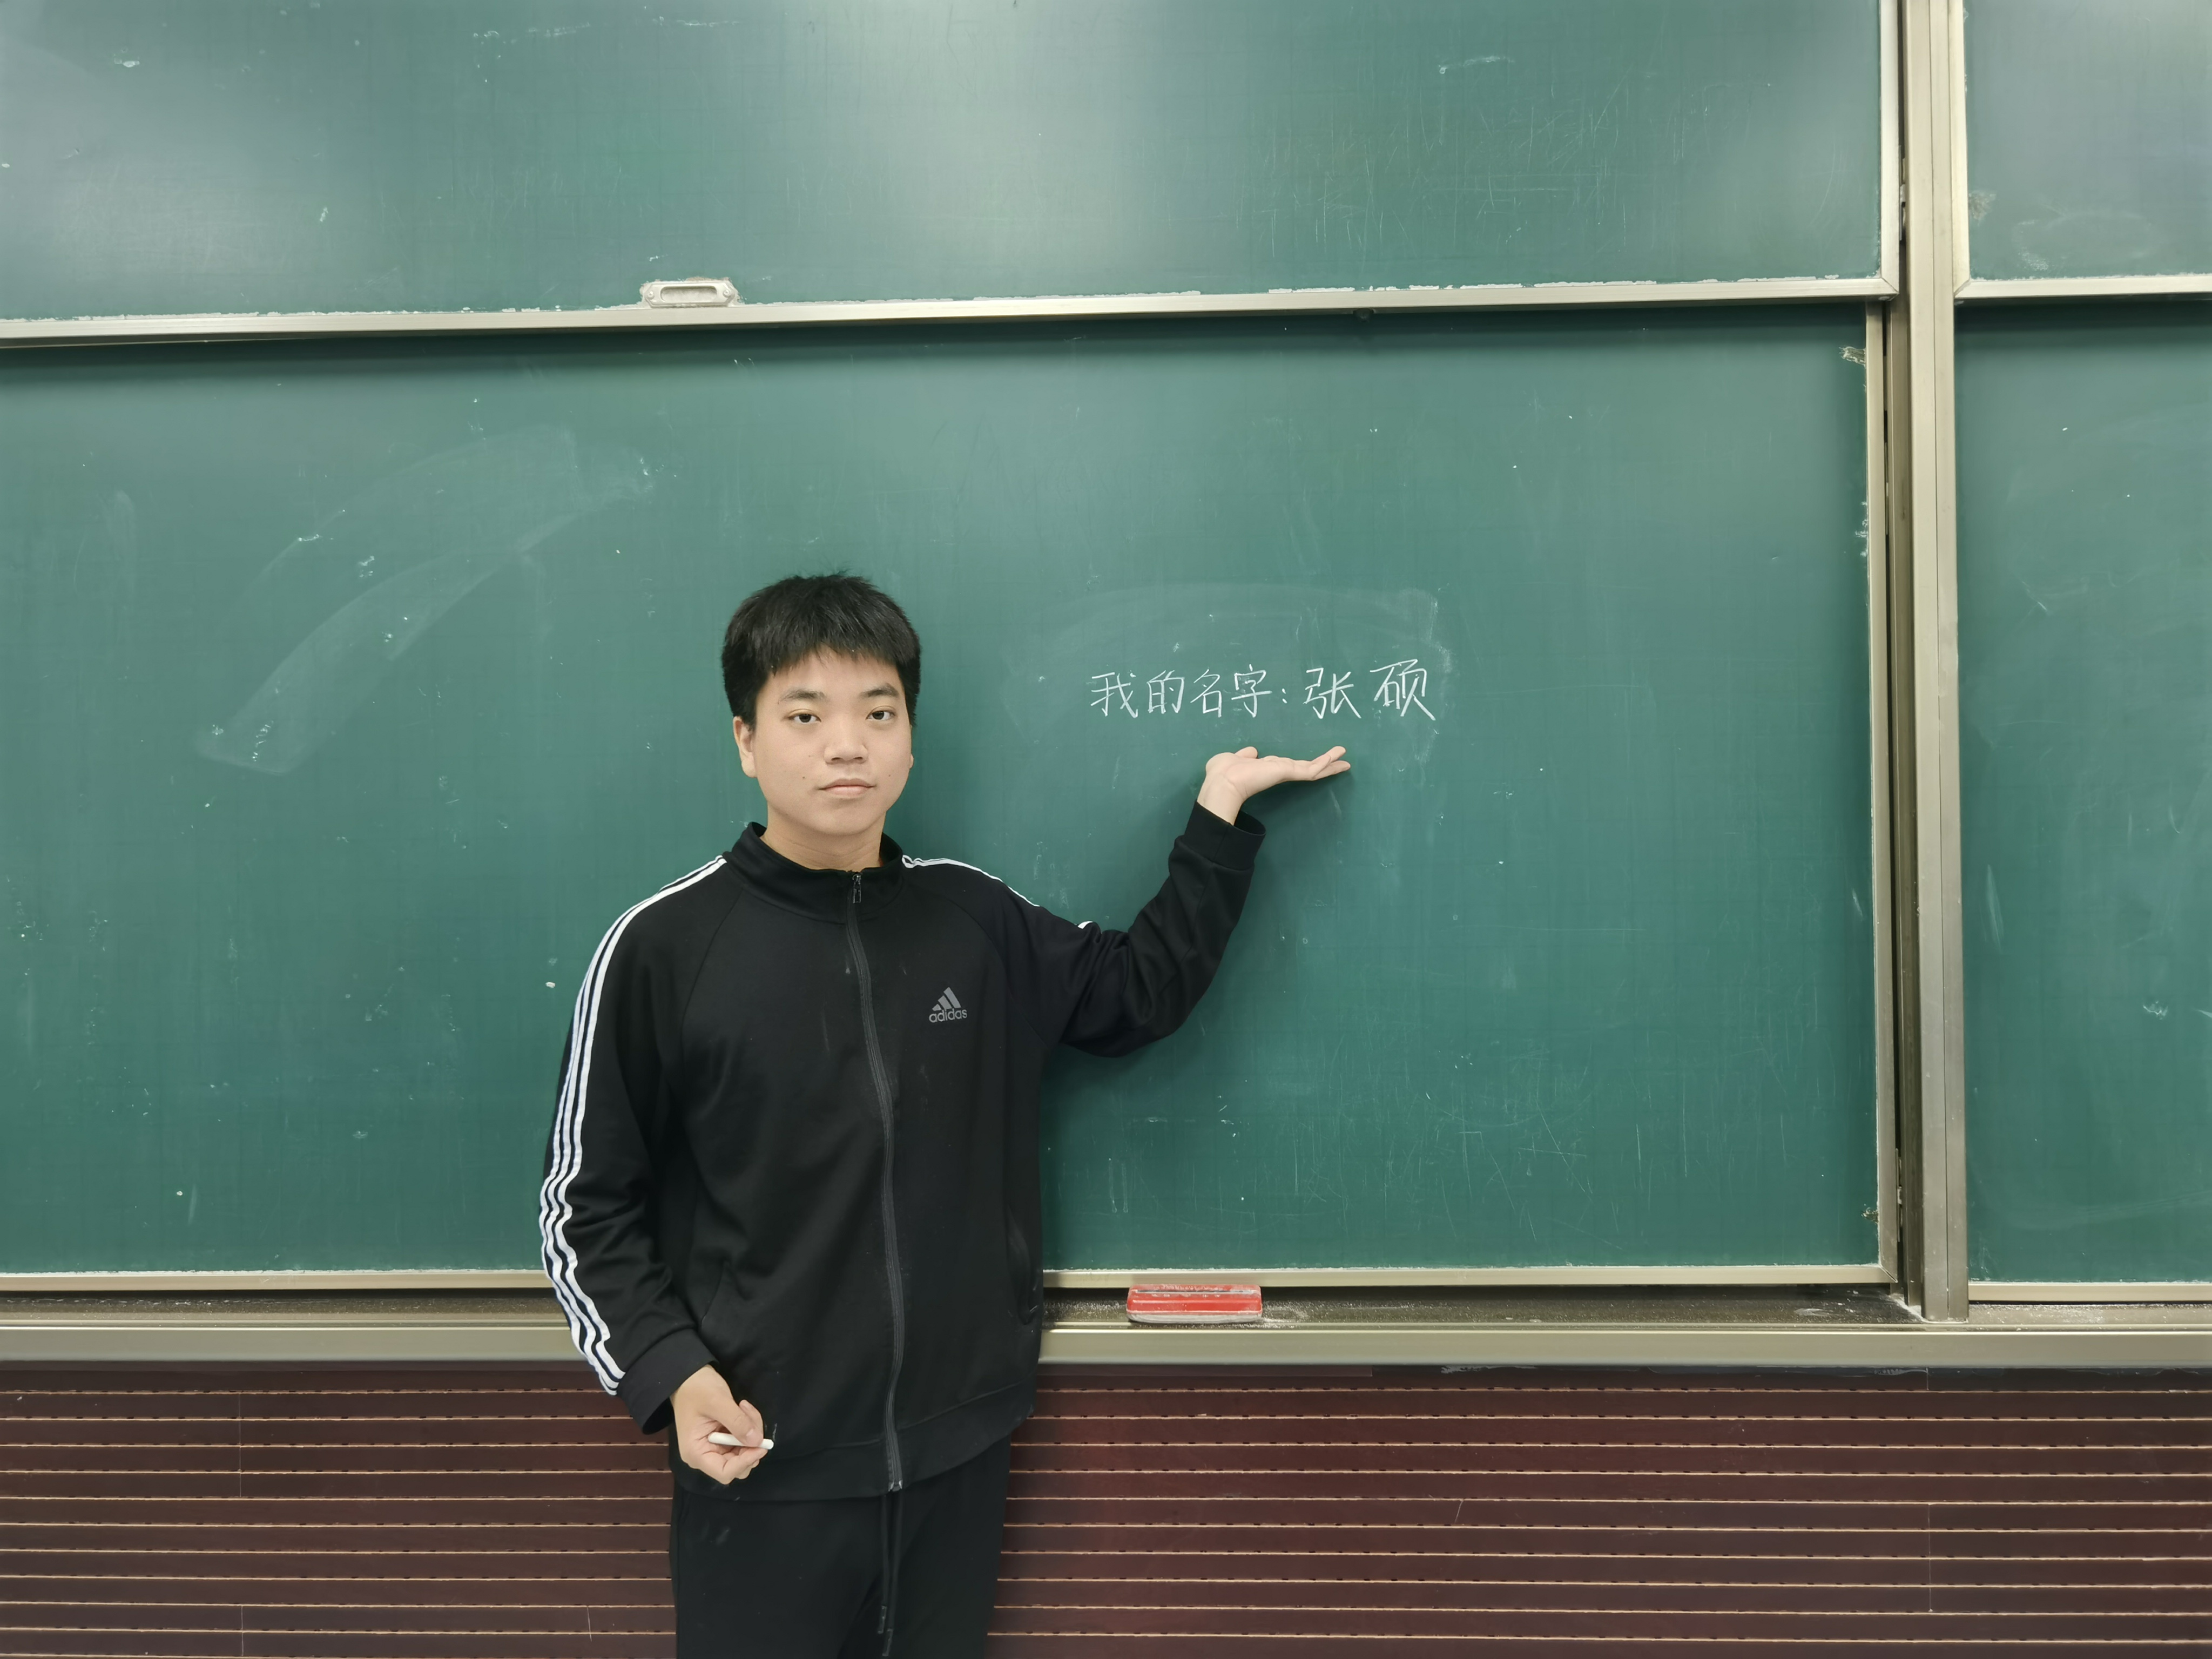 我的名字:张硕
adidas